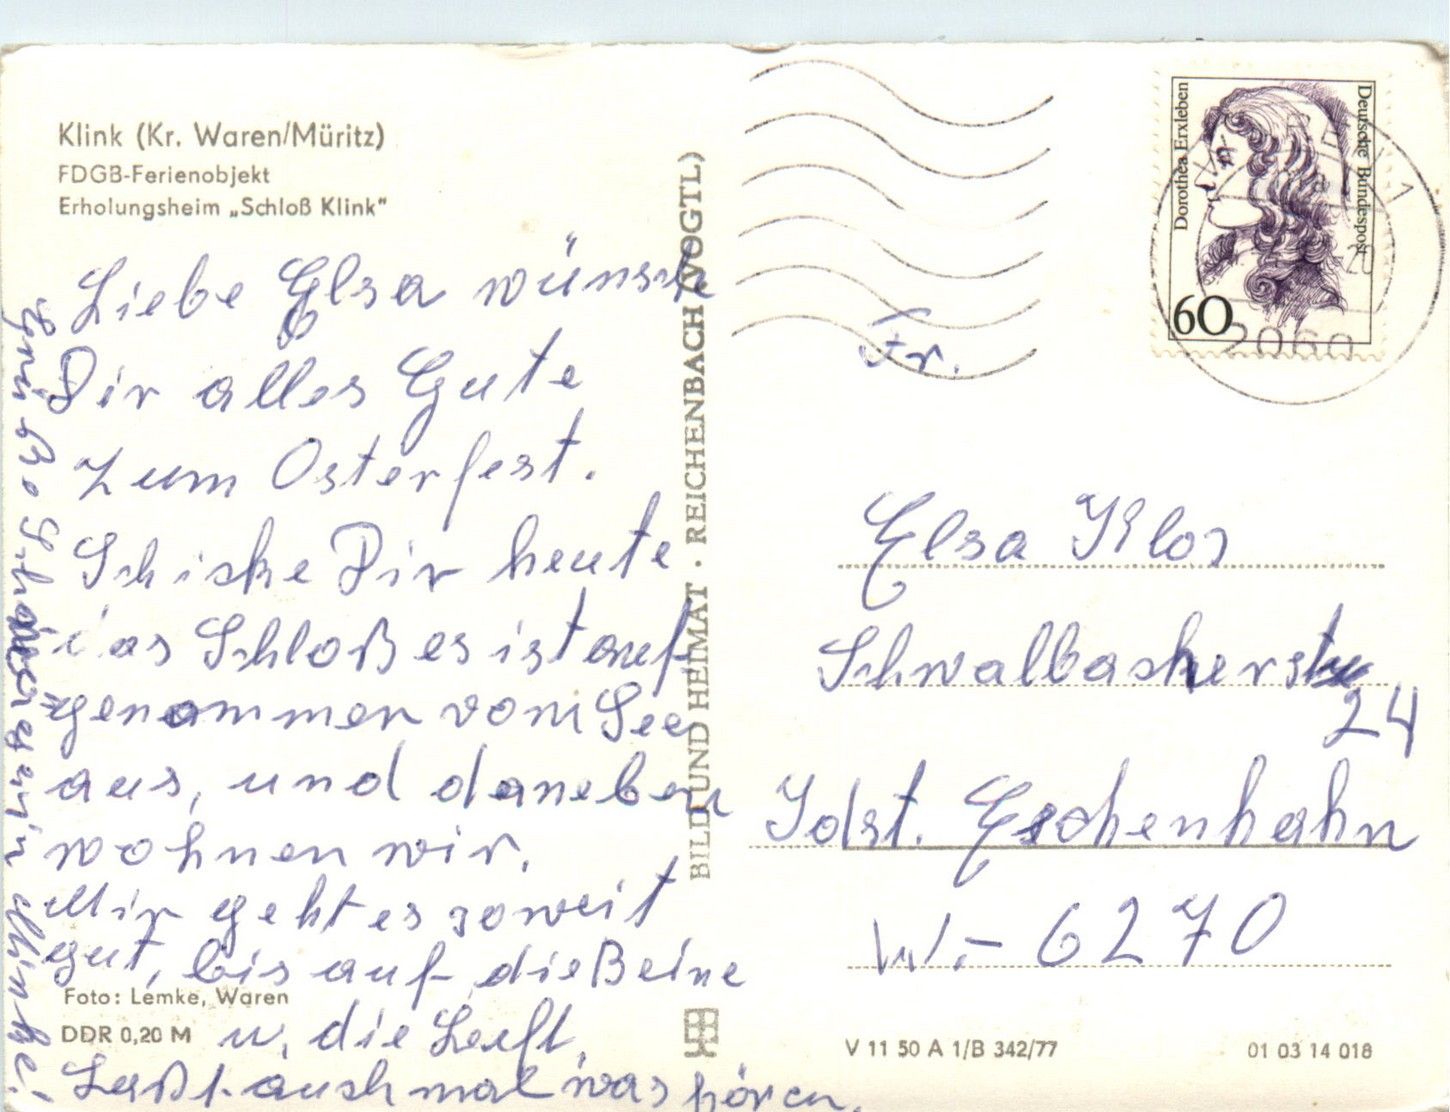 Klink (Kr. Waren/Müritz)
FDGB-Ferienobjekt
Erholungsheim „Schloß Klink"
Liebe Elsa wünsche
Dir alles Gute
zum Osterfest.
Schicke Dir heute
das Schloß es ist auf
genommen vom See
aus, und daneben
wohnen wir.
Mir geht es soweit
gut, bis auf die Beine
u. die Luft,
Laßt auch mal was hören.
Grüße
in
Foto: Lemke, Waren
DDR 0,20 M
BILD UND HEIMAT · REICHENBACH (VOGTL)
Dorothea Erxleben
Deutsche Bundespost
60
2060
Fr.
Elsa Klos
Schwalbacherstr
24
Idst. Eschenhahn
W.- 6270
V 11 50 A 1/B 342/77
01 03 14 018